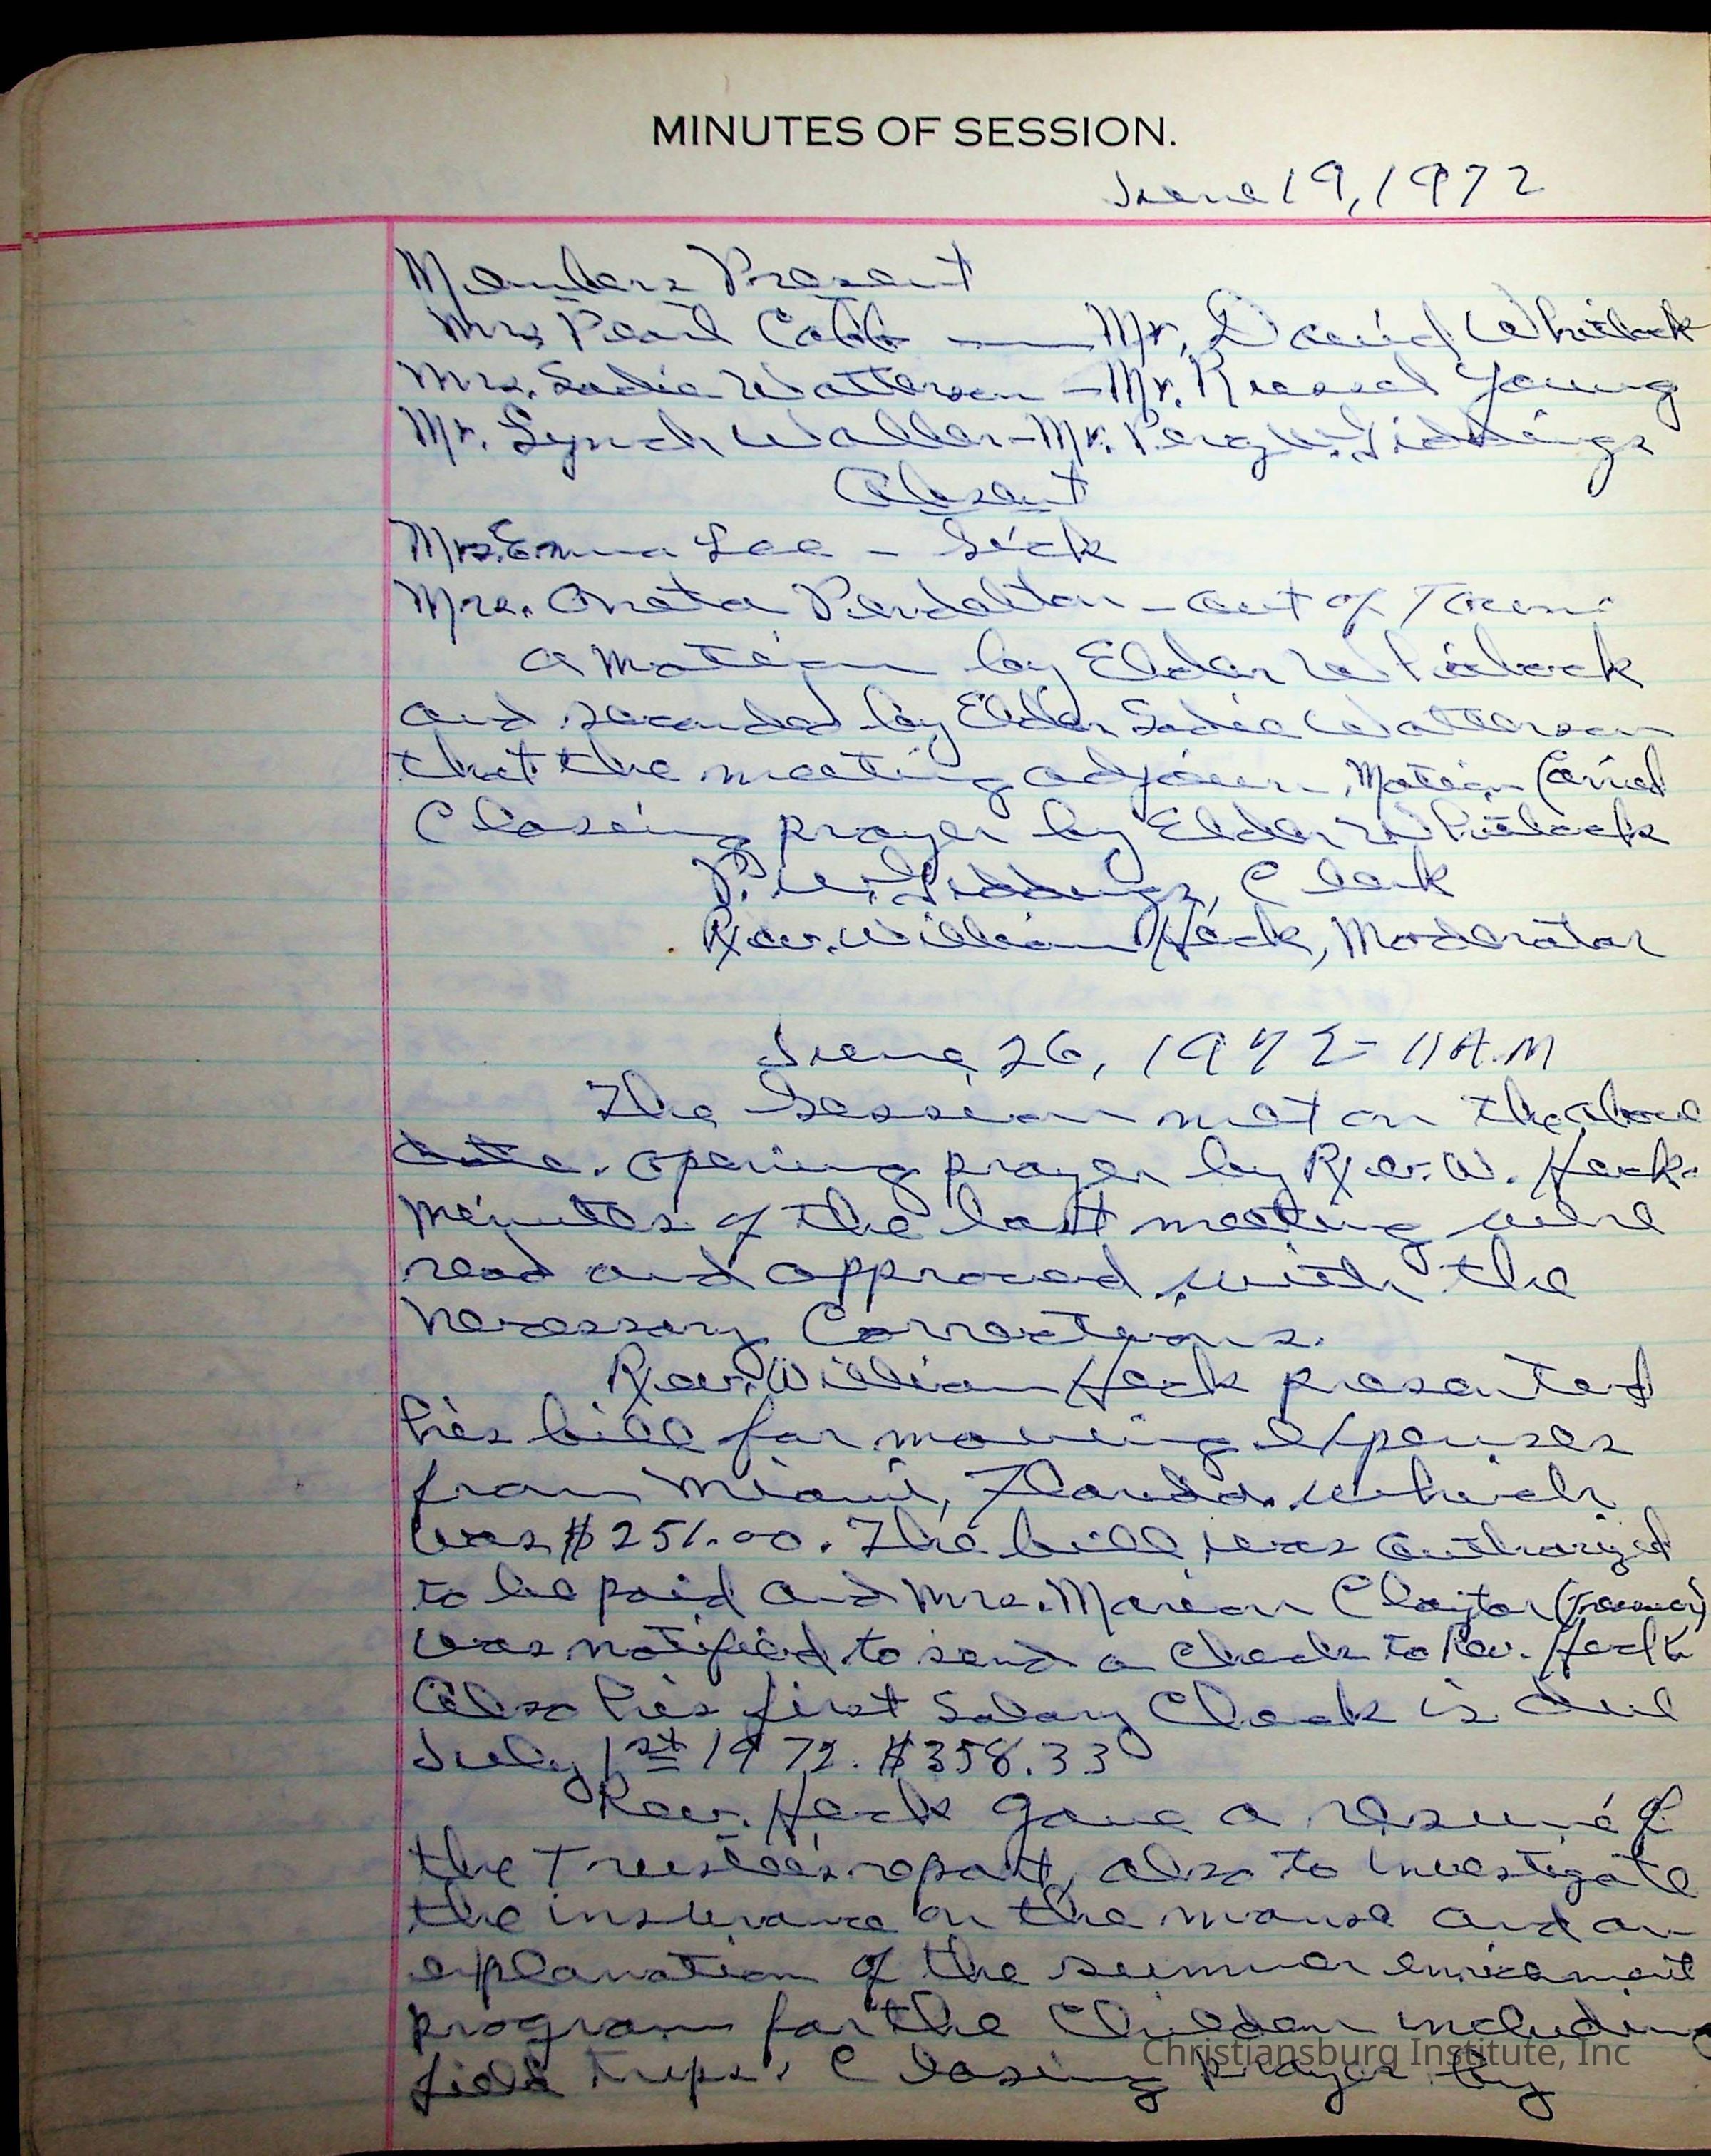 MINUTES OF SESSION.
June 19, 1972
Members Present
Mrs. Pearl Cobb — Mr. David Whitlock
Mrs. Sadie Watterson - Mr. Russel Young
Mr. Lynch Waller - Mr. Percy W. Giddings
Absent
Mrs. Emma Lee - Sick
Mrs. Oneta Pendleton - out of Town
a motion by Elder Whitlock
and seconded by Elder Sadie Watterson
that the meeting adjourn. Motion Carried
Closing prayer by Elder Whitlock
P. W. Giddings, Clerk
Rev. William Heck, Moderator
June 26, 1972 - 11 A.M
The Session met on the above
date. Opening prayer by Rev. W. Heck.
Minutes of the last meeting were
read and approved, with the
necessary Corrections.
Rev. William Heck presented
his bill for moving expenses
from Miami, Florida. which
was $251.00. The bill was authorized
to be paid and Mrs. Marion Claytor (Treasurer)
was notified to send a check to Rev. Heck
Also his first Salary Check is due
July 1st 1972. $358.33
Rev. Heck gave a resumé of
the Trustees report, also to investigate
the insurance on the manse and an
explanation of the summer enrichment
program for the Children including
field trips. Closing prayer by
Christiansburg Institute, Inc